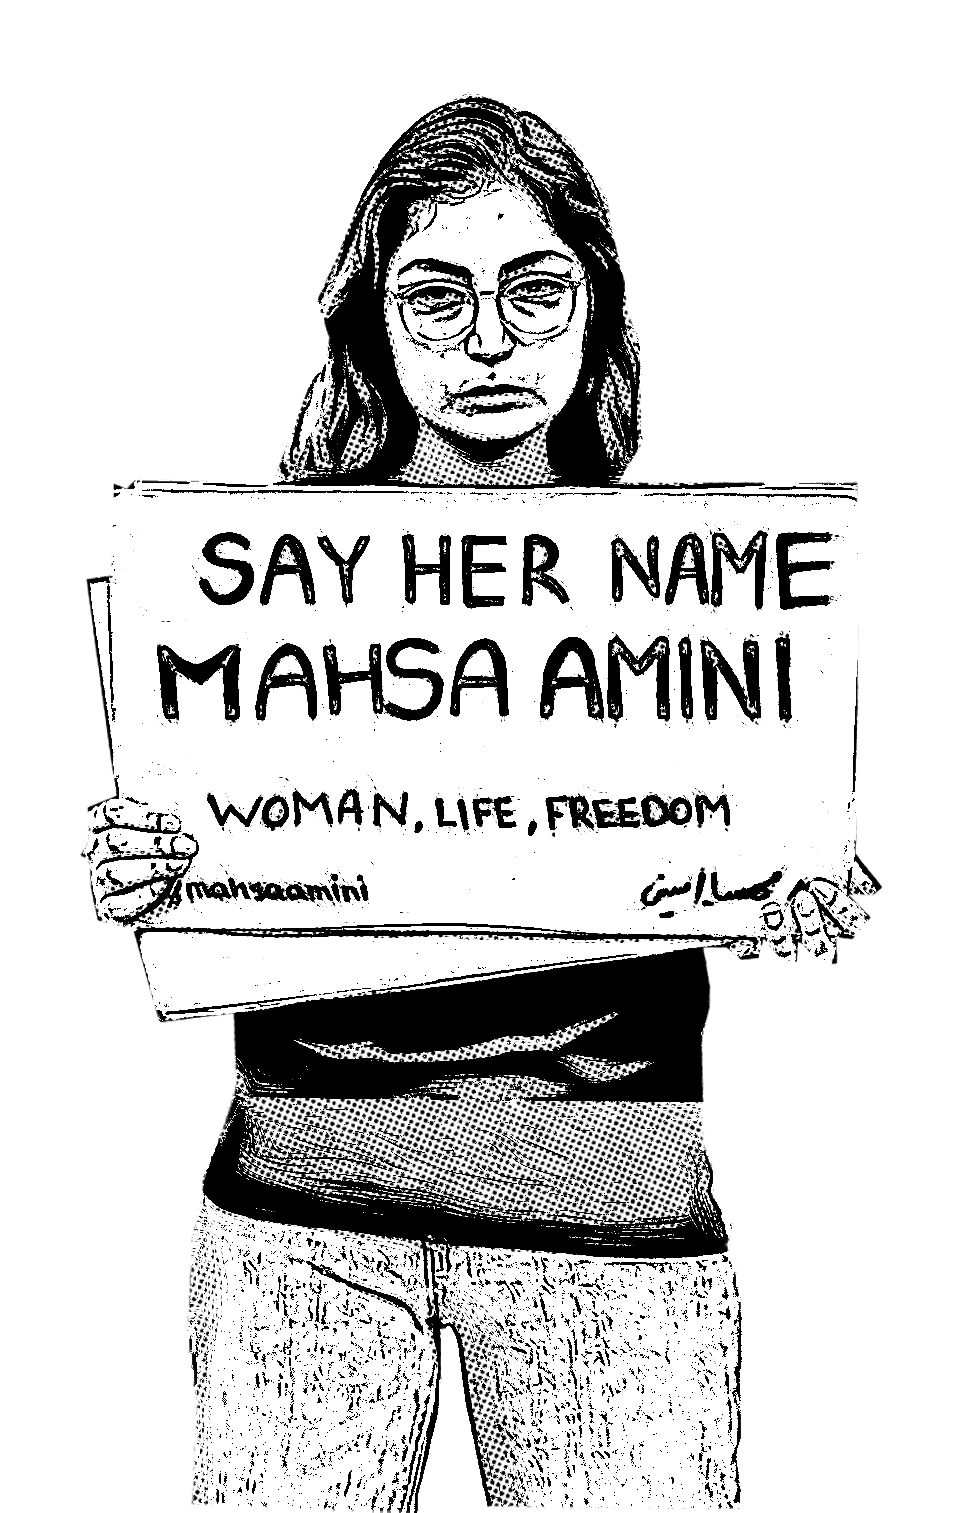 SAY HER NAME
MAHSA AMINI
WOMAN, LIFE, FREEDOM
#mahsaamini
مهسا امینی